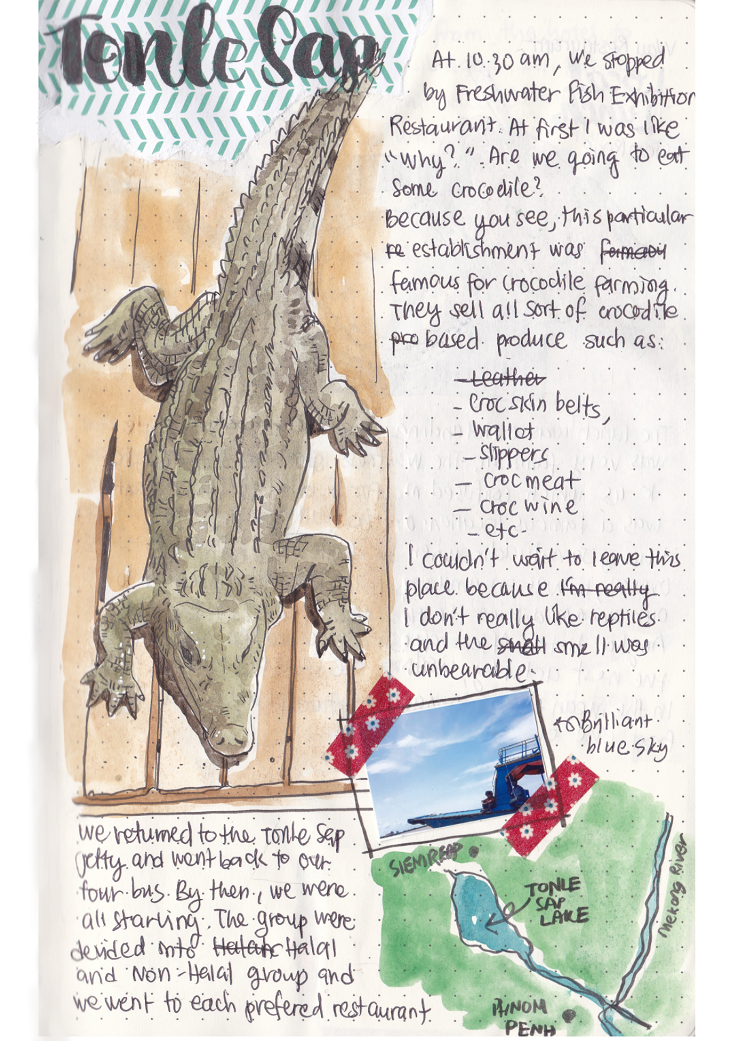 Tonle Sap
At 10.30 am, we stopped
by Freshwater Fish Exhibition
Restaurant. At first I was like
"why?". Are we going to eat
some crocodile?
because you see, this particular
re establishment was
famous for crocodile farming.
They sell all sort of crocodile
pro based produce such as:
- Leather
- Croc skin belts,
- wallot
- slippers
- croc meat
- croc wine
- etc-
I couldn't wait to leave this
place because I'm really
I don't really like reptiles
and the smell smell was
unbearable.
Brilliant
blue sky
we returned to the Tonle Sap
jetty and went back to our
tour bus. By then, we were
all starving. The group were
devided into Halal
and Non-Halal group and
we went to each prefered restaurant.
SIEM REAP
TONLE
SAP
LAKE
Mekong River
PHNOM
PENH